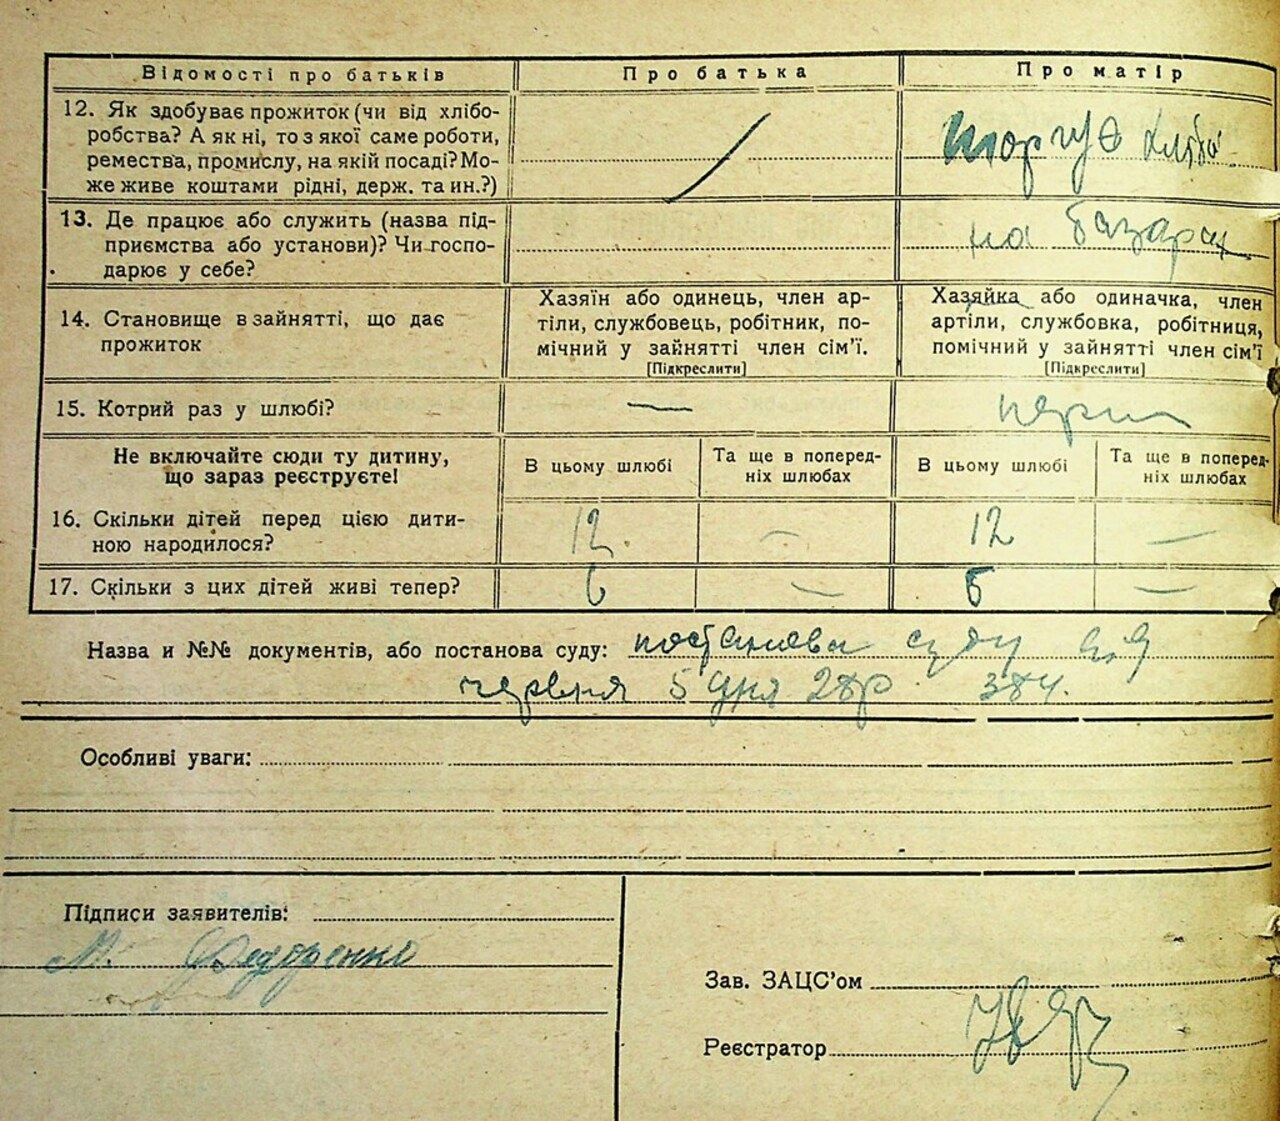 Відомості про батьків Про батька Про матір
12. Як здобуває прожиток (чи від хлібо-
робства? А як ні, то з якої саме роботи,
ремества, промислу, на якій посаді? Мо-
же живе коштами рідні, держ. та ин.?)
торгує хлібом
13. Де працює або служить (назва під-
приємства або установи)? Чи госпо-
дарює у себе?
на базарі
14. Становище в зайнятті, що дає
прожиток
Хазяїн або одинець, член ар-
тіли, службовець, робітник, по-
мічний у зайнятті член сім'ї.
[Підкреслити]
Хазяйка або одиначка, член
артіли, службовка, робітниця,
помічний у зайнятті член сім'ї
[Підкреслити]
15. Котрий раз у шлюбі? —
Не включайте сюди ту дитину,
що зараз реєструєте!
В цьому шлюбі
Та ще в поперед-
ніх шлюбах
В цьому шлюбі
Та ще в поперед-
ніх шлюбах
16. Скільки дітей перед цією дити-
ною народилося?
12 — 12 —
17. Скільки з цих дітей живі тепер? 6 — 6 —
Назва и №№ документів, або постанова суду: постанова суду
червня 5 дня 28р 384.
Особливі уваги:
Підписи заявителів:
М. Федоренко
Зав. ЗАЦС'ом
Реєстратор